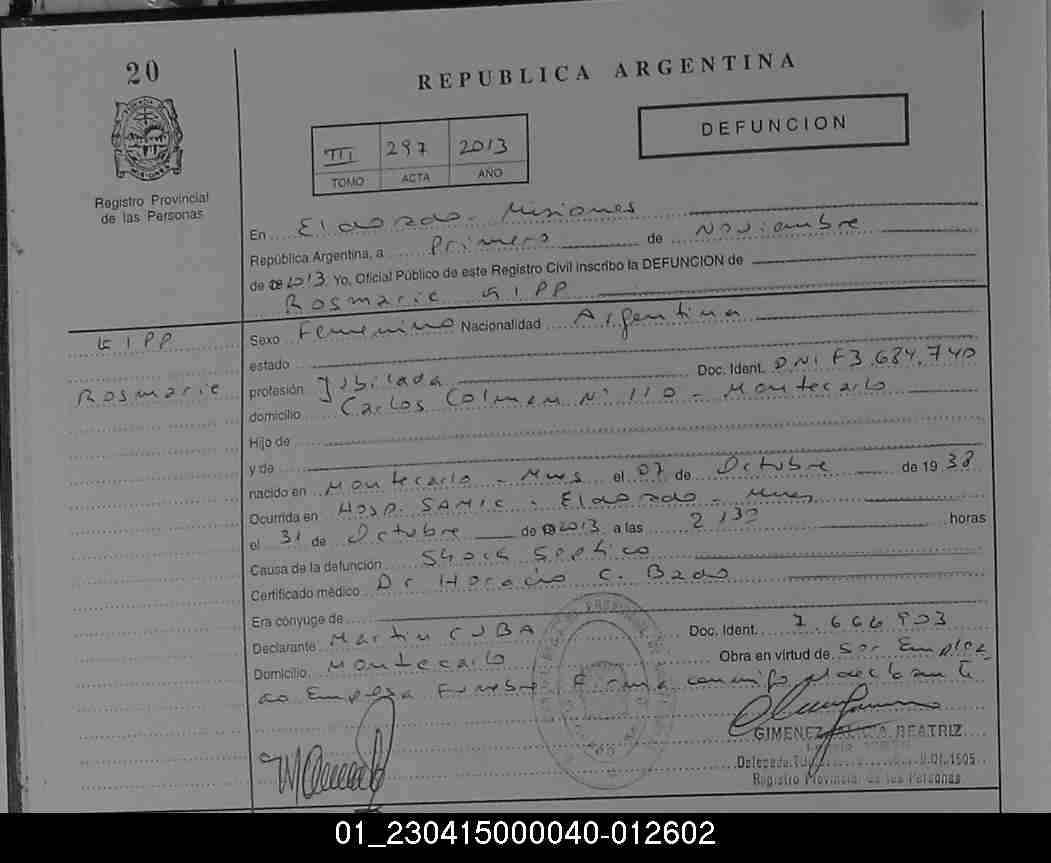 20
REPUBLICA ARGENTINA
DEFUNCION
III 297 2013
TOMO ACTA AÑO
Registro Provincial
de las Personas
En Eldorado - Misiones
República Argentina, a Primero de Noviembre
de 2013 Yo, Oficial Público de este Registro Civil inscribo la DEFUNCION de
Rosmarie KIPP
KIPP
Rosmarie
Sexo Femenino Nacionalidad Argentina
estado
Doc. Ident. DNI F3.684.740
profesión Jubilada
domicilio Carlos Colmen Nº 110 - Montecarlo
Hijo de
y de
nacido en Montecarlo - Mnes el 07 de Octubre de 1938
Ocurrida en Hosp. SAMIC - Eldorado - Mnes
el 31 de Octubre de 2013 a las 2130 horas
Causa de la defunción Shock Septico
Certificado médico Dr Horacio C. Bado
Era cónyuge de
Declarante Martin CUBA Doc. Ident. 7.666.903
Domicilio Montecarlo Obra en virtud de Ser Emplea
do Empresa Funebre Firma conmigo el declarante
GIMENEZ BEATRIZ
Delegada
Registro Provincial de las Personas
01_230415000040-012602